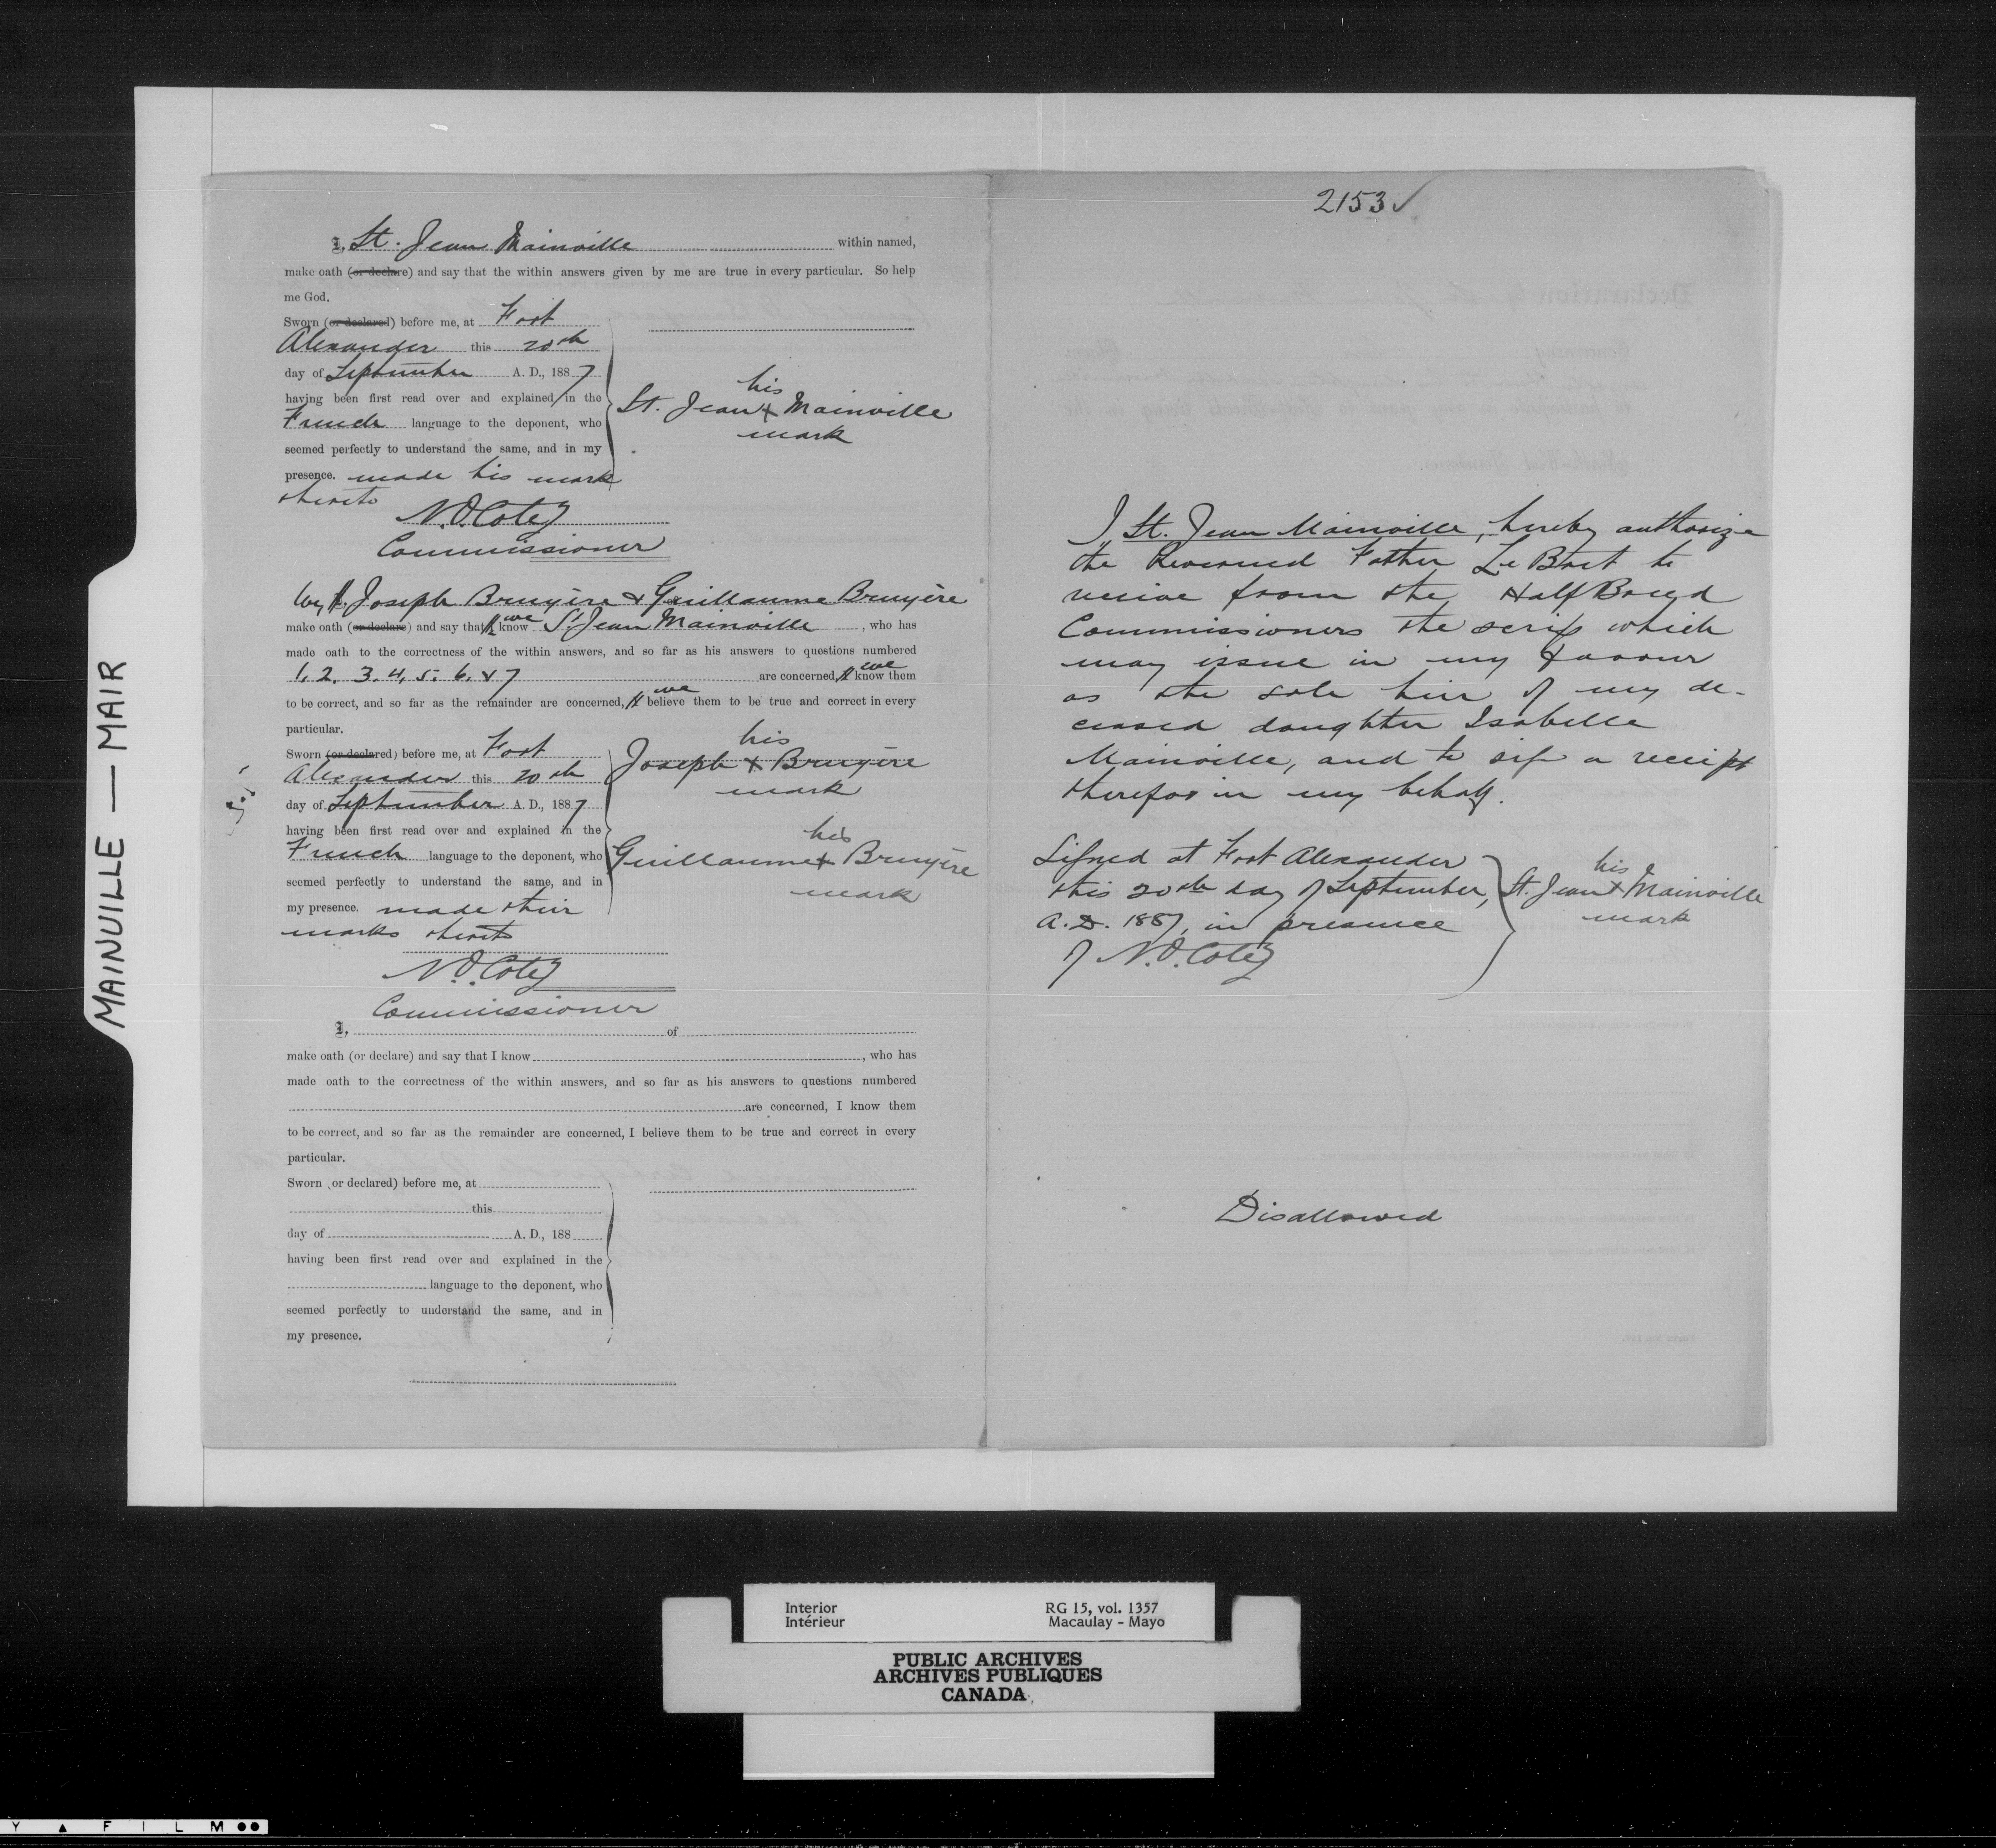 MAINVILLE — MAIR
I, St. Jean Mainville within named,
make oath (or declare) and say that the within answers given by me are true in every particular. So help
me God.
Sworn (or declared) before me, at Fort
Alexander this 20th
day of September A. D., 1887
having been first read over and explained in the
French language to the deponent, who
seemed perfectly to understand the same, and in my
presence. made his mark
thereto
his
St. Jean x Mainville
mark
N.O. Coté
Commissioner
We, I, Joseph Bruyère & Guillaume Bruyère
make oath (or declare) and say that I we know St Jean Mainville, who has
made oath to the correctness of the within answers, and so far as his answers to questions numbered
1. 2. 3. 4. 5. 6. & 7 are concerned, I we know them
to be correct, and so far as the remainder are concerned, I we believe them to be true and correct in every
particular.
Sworn (or declared) before me, at Fort
Alexander this 20th
day of September A. D., 1887
having been first read over and explained in the
French language to the deponent, who
seemed perfectly to understand the same, and in
my presence. made their
marks thereto
his
Joseph x Bruyère
mark
his
Guillaume x Bruyère
mark
N.O. Coté
Commissioner
I, of
make oath (or declare) and say that I know , who has
made oath to the correctness of the within answers, and so far as his answers to questions numbered
are concerned, I know them
to be correct, and so far as the remainder are concerned, I believe them to be true and correct in every
particular.
Sworn (or declared) before me, at
this
day of A. D., 188
having been first read over and explained in the
language to the deponent, who
seemed perfectly to understand the same, and in
my presence.
2153 ✓
I, St. Jean Mainville, hereby authorize
the Reverend Father Le Bret to
receive from the Half Breed
Commissioners the scrip which
may issue in my favour
as the sole heir of my de-
ceased daughter Isabelle
Mainville, and to sign a receipt
therefor in my behalf.
Signed at Fort Alexander
this 20th day of September,
A.D. 1887, in presence
of N.O. Coté
his
St. Jean x Mainville
mark
Disallowed
Interior RG 15, vol. 1357
Intérieur Macaulay - Mayo
PUBLIC ARCHIVES
ARCHIVES PUBLIQUES
CANADA
Y ▲ F I L M ●●